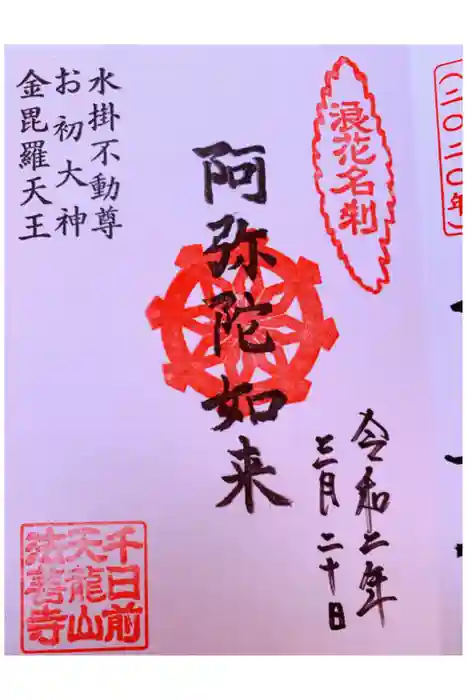 (二〇二〇年)
浪花名刹
令和二年
三月二十日
阿弥陀如来
水掛不動尊
お初大神
金毘羅天王
千日前
天龍山
法善寺